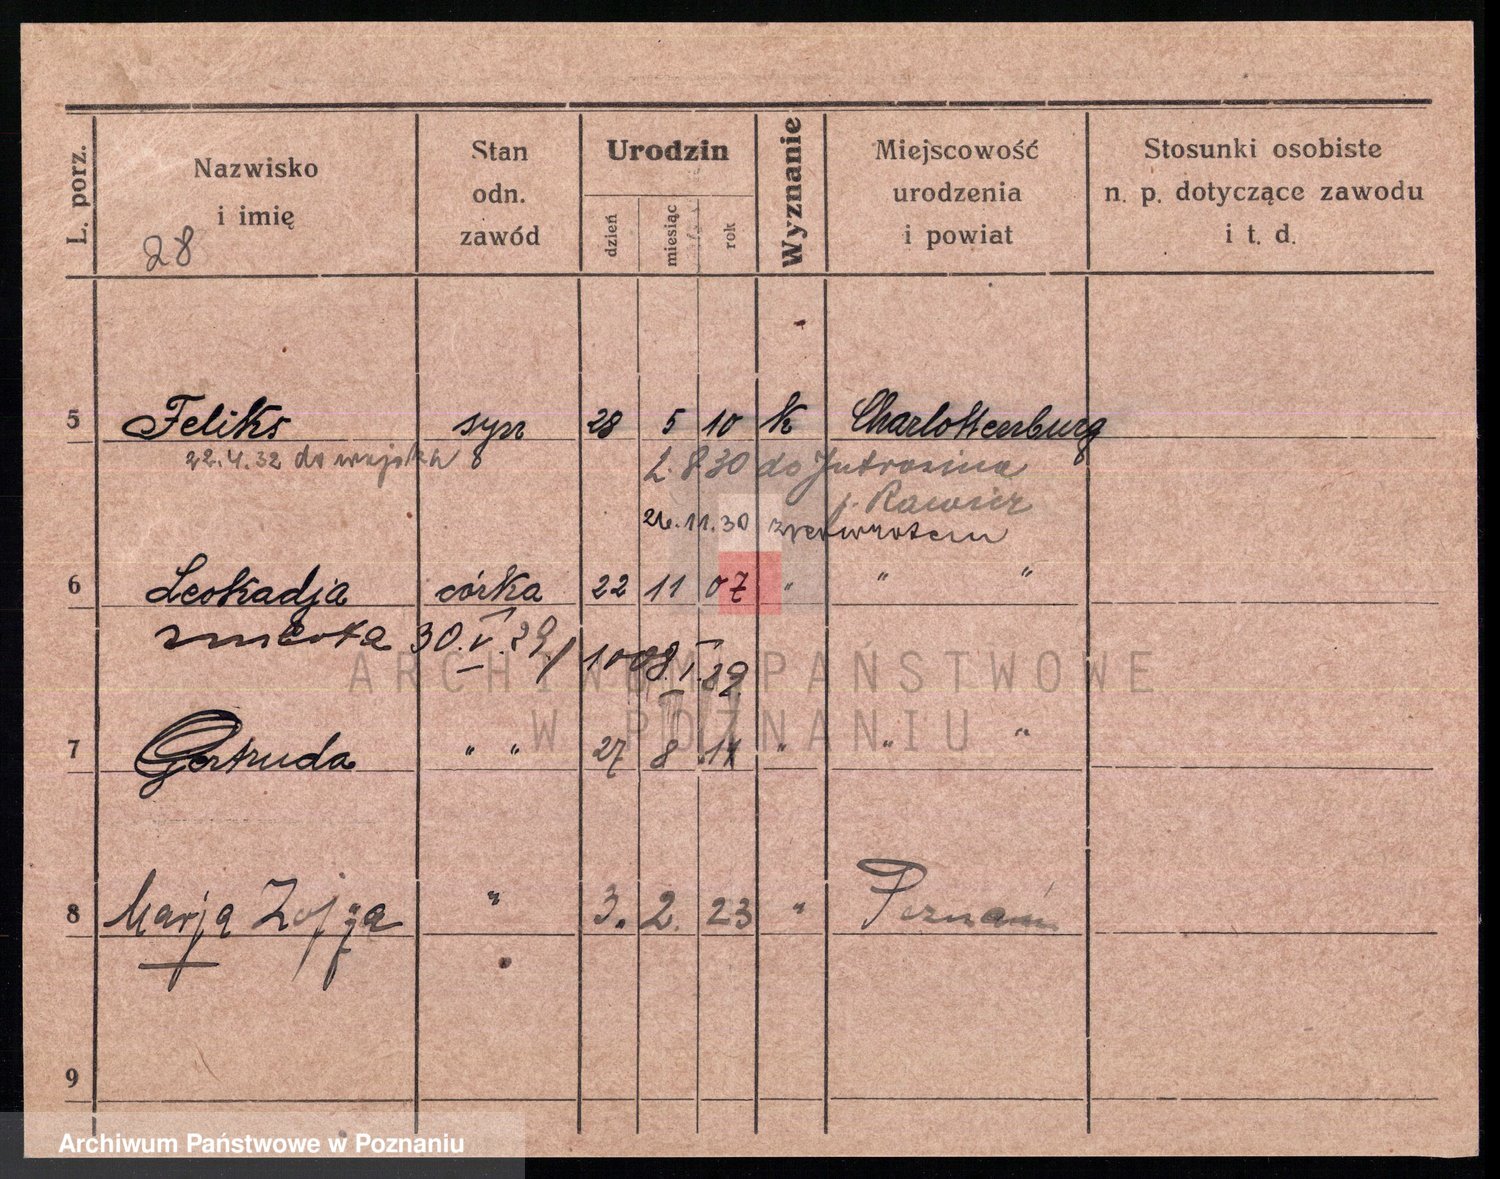 L. porz.
Nazwisko
i imię
28
Stan
odn.
zawód
Urodzin
dzień
miesiąc
rok
Wyznanie
Miejscowość
urodzenia
i powiat
Stosunki osobiste
n. p. dotyczące zawodu
i t. d.
5 Feliks syn 28 5 10 k Charlottenburg
22.4.32 do wojska 2.8.30 do Jutrosina
p. Rawicz
26.11.30 zpowrotem
6 Leokadja córka 22 11 07 " " "
30.V.29
7 Gertruda " " 27 8 11 " " "
8 Marja Zofja " 3. 2. 23 " Poznań
9
ARCHIWUM PAŃSTWOWE
W POZNANIU
Archiwum Państwowe w Poznaniu